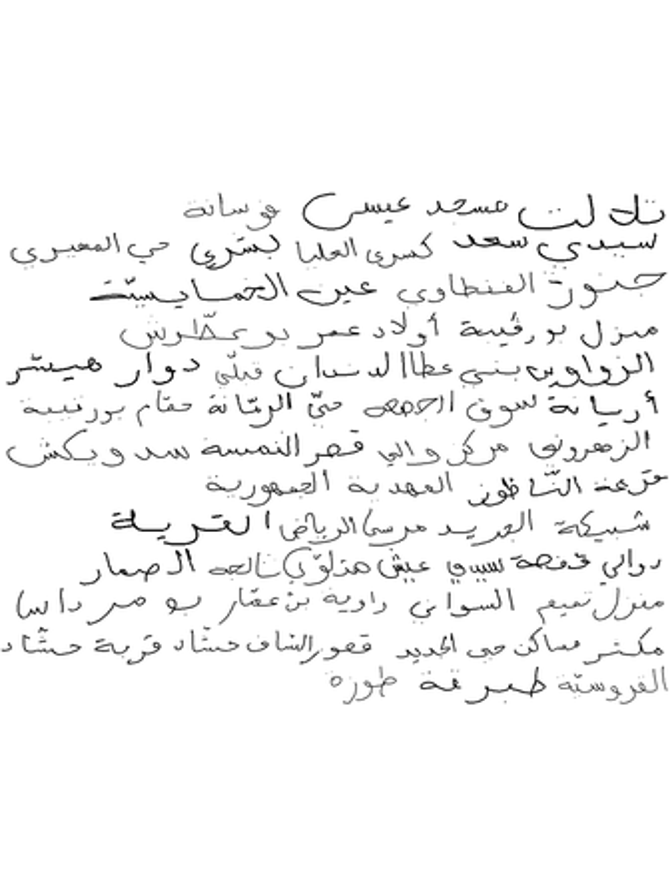 تلالت مسجد عيسى فوسانة
سيدي سعد كسرى العليا بشري حي المعيري
جنورة الفنطاوي عين الخمايسيّة
منزل بورقيبة أولاد عمر بوعطّرش
الزواوين بني عطا الدندان قبلّي دوار هيشر
أريانة سوق الجمعة حيّ الرمّانة مقام بورقيبة
الزهروني مركز والي قصر النمسة سد ويكش
قرعة النّاظور المهدية الجمهورية
شبيكة الجريد مرسى الرياض القرية
دوالي قفصة سيدي عيش هذلول بنالجه الصمار
منزل تميم السواني زاوية بن عمّار بومرداس
مكثر مساكن حي الحديد قصور الساف حشّاد قرية حشّاد
الفروسيّة طبرقة طوزة